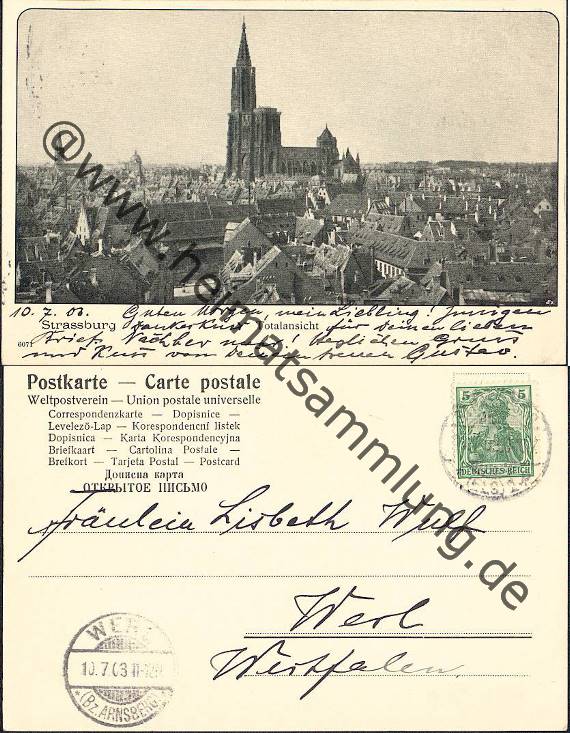 10. 7. 03. Guten Morgen, mein Liebling! Innigen
Strassburg Totalansicht
Dankeskuß für deinen lieben
6077
Brief. Nachher mehr! Herzlichen Gruss
und Kuss von Deinem treuen Gustav.
@www.heimatsammlung.de
Postkarte — Carte postale
Weltpostverein — Union postale universelle
Correspondenzkarte — Dopisnice —
Levelező-Lap — Korespondencní listek
Dopisnica — Karta Korespondencyjna
Briefkaart — Cartolina Postale —
Brefkort — Tarjeta Postal — Postcard
Дописна карта
ОТКРЫТОЕ ПИСЬМО
5 5
DEUTSCHES REICH
(ELS)
Fräulein Lisbeth Wulf
Werl
Westfalen.
WERL
10.7.03 11-12
* (Bz. ARNSBERG) *